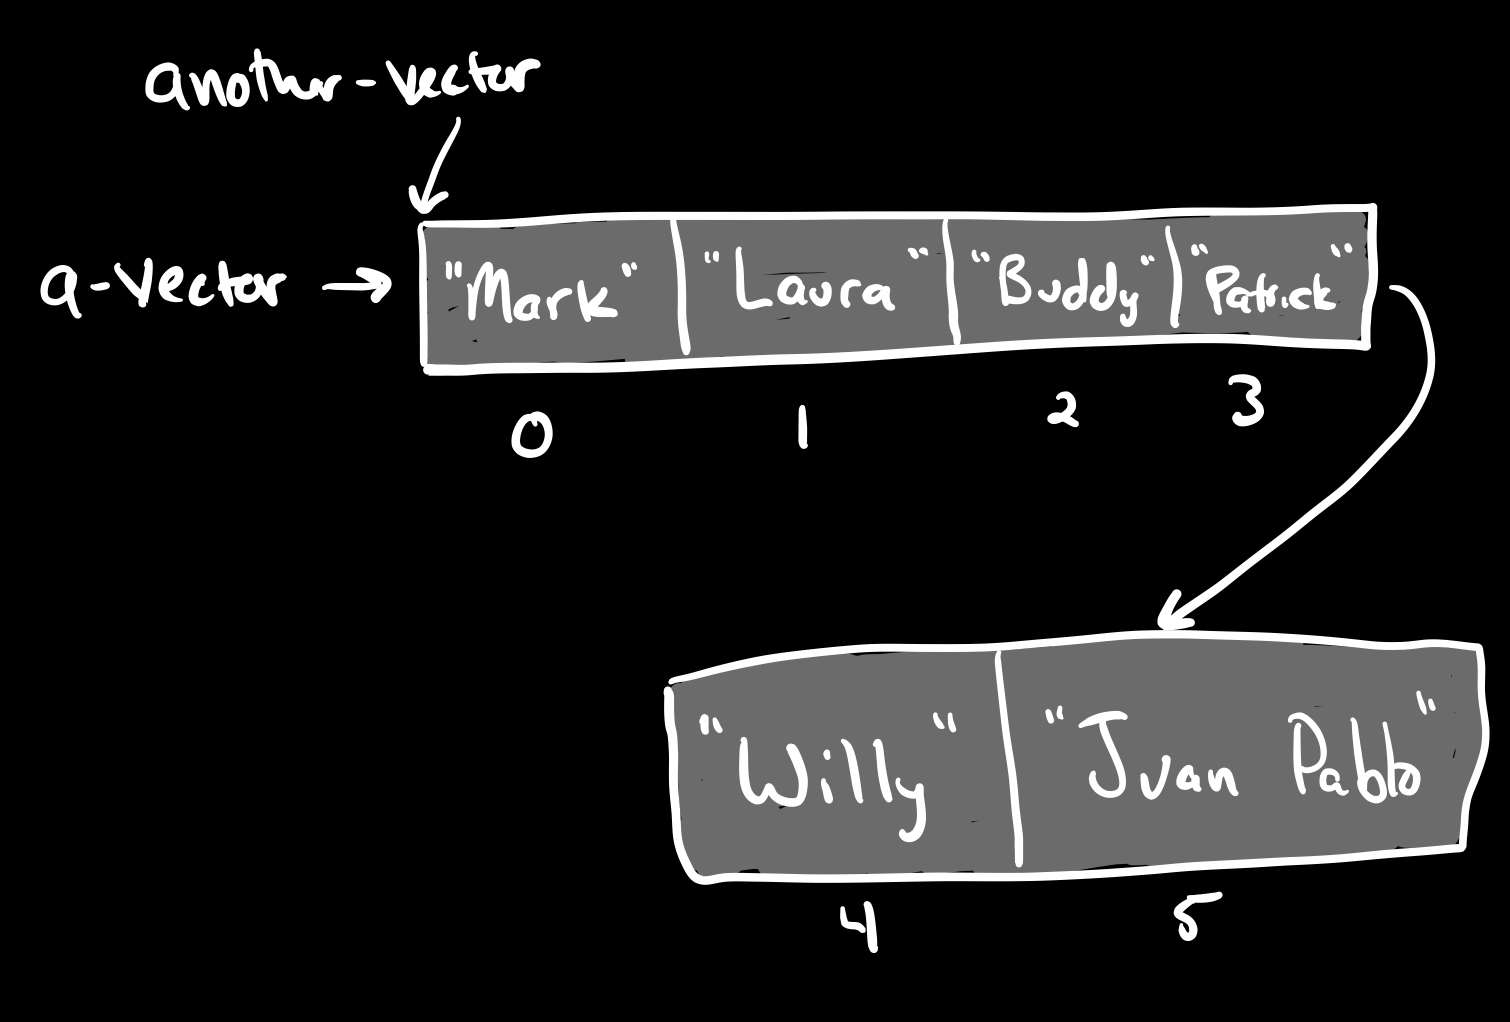 another-vector
a-vector → "Mark" "Laura" "Buddy" "Patrick"
0 1 2 3
"Willy" "Juan Pablo"
4 5